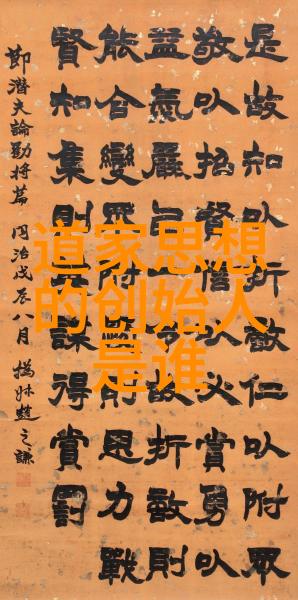 是故知以折敵仁以附眾
敬以招賢信以必賞勇以
益氣嚴以一令故折敵則
能合變眾附愛則思力戰
賢知集則英謀得賞罰
節潛夫論勸將篇 同治戊辰八月 撝叔趙之謙
道家思想
的创始人
是谁